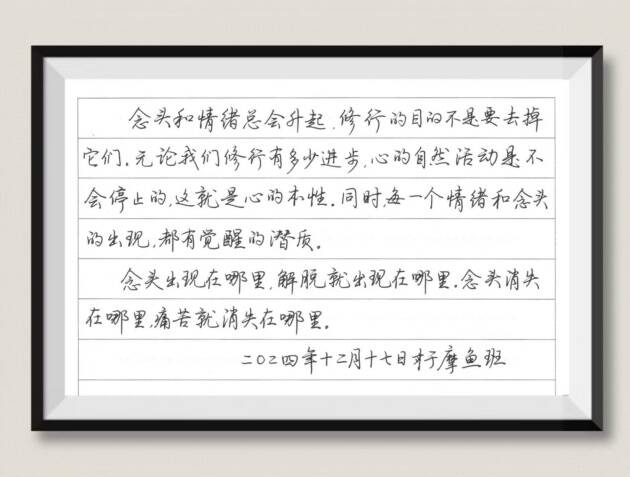 念头和情绪总会升起，修行的目的不是要去掉
它们。无论我们修行有多少进步，心的自然活动是不
会停止的，这就是心的本性。同时，每一个情绪和念头
的出现，都有觉醒的潜质。
念头出现在哪里，解脱就出现在哪里。念头消失
在哪里，痛苦就消失在哪里。
二〇二四年十二月十七日于摩鱼班